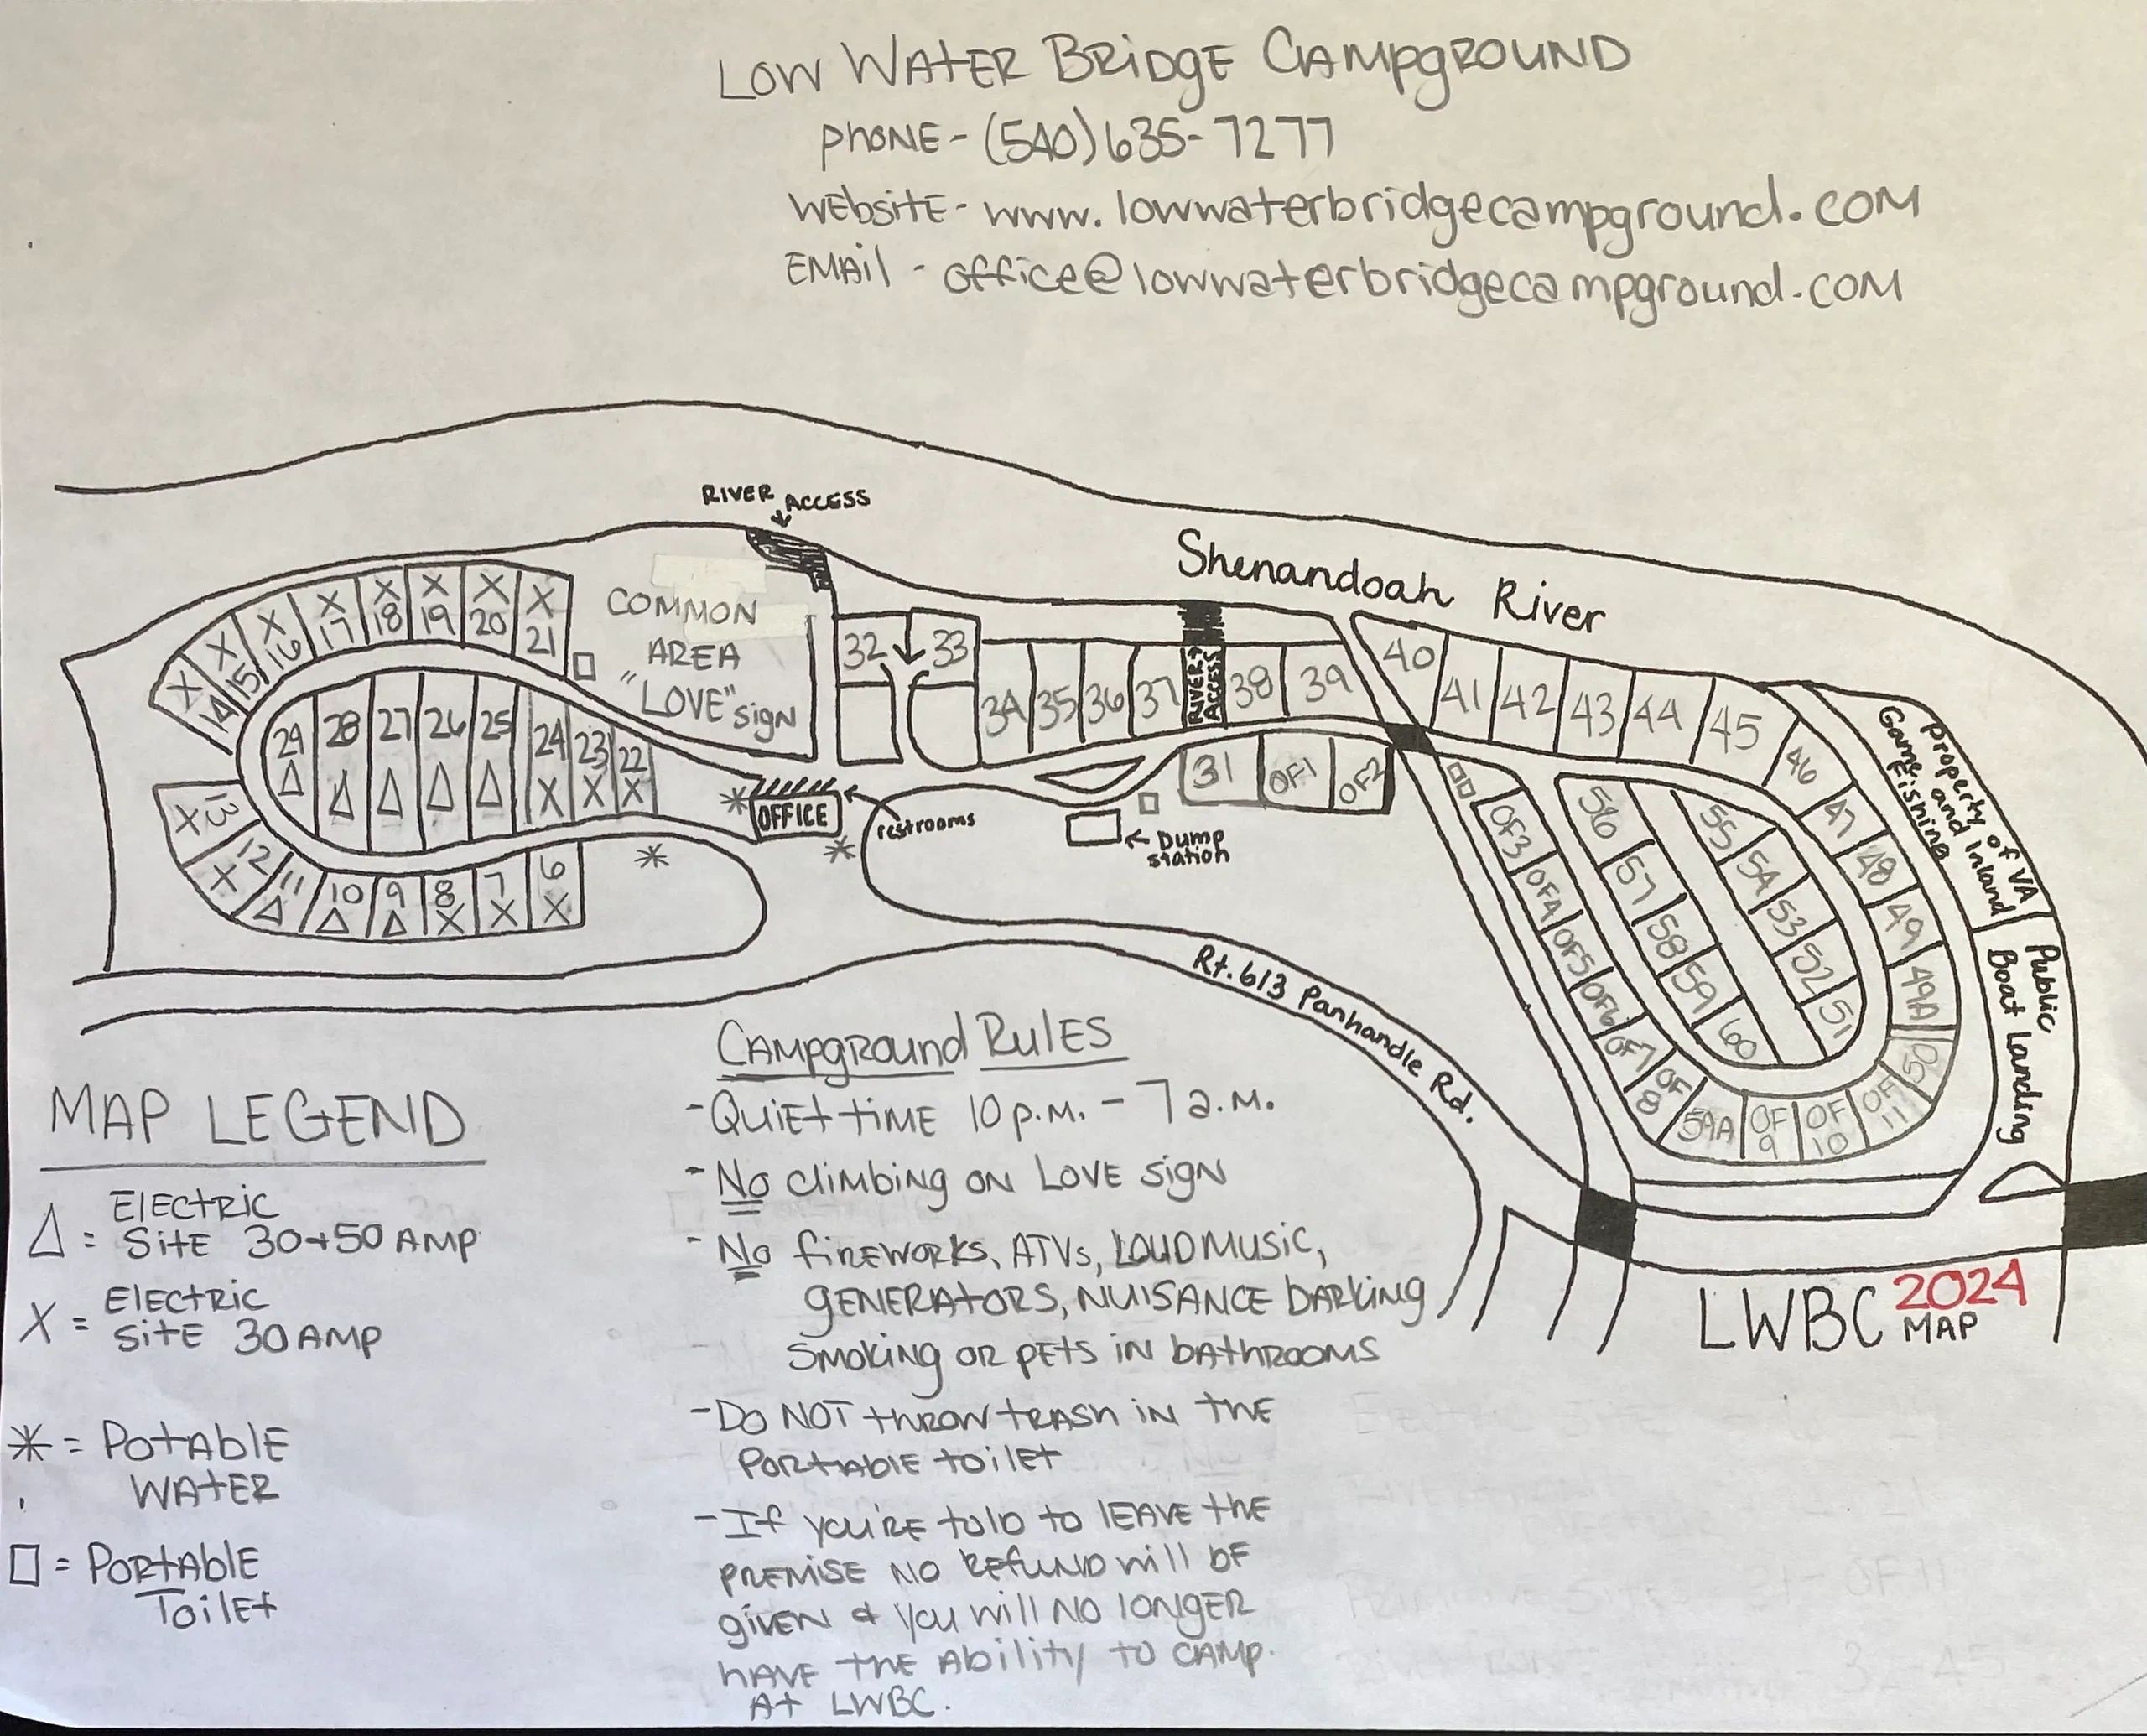 LOW WATER BRIDGE CAMPGROUND
PHONE - (540) 635-7277
WEBSITE - www.lowwaterbridgecampground.com
EMAIL - office@lowwaterbridgecampground.com
RIVER ACCESS
Shenandoah River
X X X X X X X X
14 15 16 17 18 19 20 21
COMMON
AREA
"LOVE" SIGN
32 33
34 35 36 37
RIVER ACCESS
38 39
40 41 42 43 44 45 46 47 48 49 49A 50
29 28 27 26 25 24 23 22
Δ Δ Δ Δ Δ X X X
13 12 11 10 9 8 7 6
X X Δ Δ Δ X X X
* OFFICE
restrooms
*
*
31 OF1 OF2
Dump
station
OF3 OF4 OF5 OF6 OF7 OF8 59A OF9 OF10 OF11
56 57 58 59 60
55 54 53 52 51
Property of VA
Game and Inland
Fishing
Public
Boat Landing
Rt. 613 Panhandle Rd.
LWBC 2024
MAP
MAP LEGEND
Δ = ELECTRIC
SITE 30+50 AMP
X = ELECTRIC
SITE 30 AMP
* = POTABLE
WATER
□ = PORTABLE
TOILET
CAMPGROUND RULES
- QUIET TIME 10 P.M. - 7 A.M.
- NO CLIMBING ON LOVE SIGN
- NO FIREWORKS, ATVs, LOUD MUSIC,
GENERATORS, NUISANCE BARKING
SMOKING OR PETS IN BATHROOMS
- DO NOT THROW TRASH IN THE
PORTABLE TOILET
- IF YOU'RE TOLD TO LEAVE THE
PREMISE NO REFUND WILL BE
GIVEN & YOU WILL NO LONGER
HAVE THE ABILITY TO CAMP
AT LWBC.